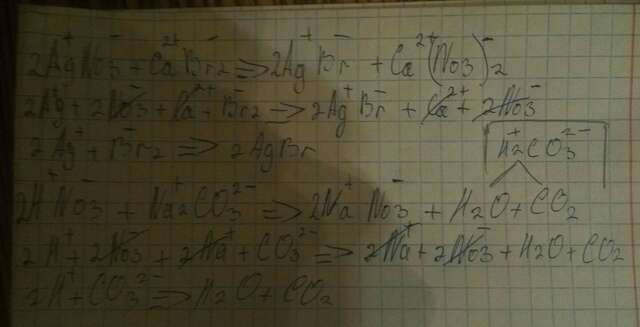 2Ag⁺NO3⁻ + Ca²⁺Br2⁻ => 2Ag⁺Br⁻ + Ca²⁺(NO3)⁻2
2Ag⁺ + 2NO3⁻ + Ca²⁺ + Br2⁻ => 2Ag⁺Br⁻ + Ca²⁺ + 2NO3⁻
2Ag⁺ + Br2⁻ => 2AgBr
H⁺2CO3²⁻
2H⁺NO3⁻ + Na⁺2CO3²⁻ => 2Na⁺NO3⁻ + H2O + CO2
2H⁺ + 2NO3⁻ + 2Na⁺ + CO3²⁻ => 2Na⁺ + 2NO3⁻ + H2O + CO2
2H⁺ + CO3²⁻ => H2O + CO2